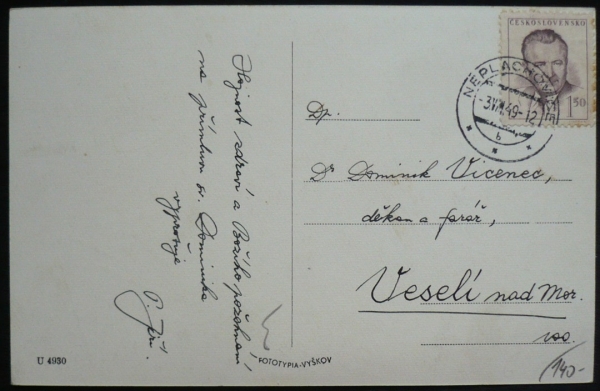 Hojnost zdraví a Božího požehnání
na přímluvu sv. Dominika
vyprošuje
P.
U 4930
FOTOTYPIA-VYŠKOV
ČESKOSLOVENSKO
1.50
NEPLACHOV
49-12
b
Dp.
Dr Dominik Vicenec,
děkan a farář,
Veselí nad Mor.
140-